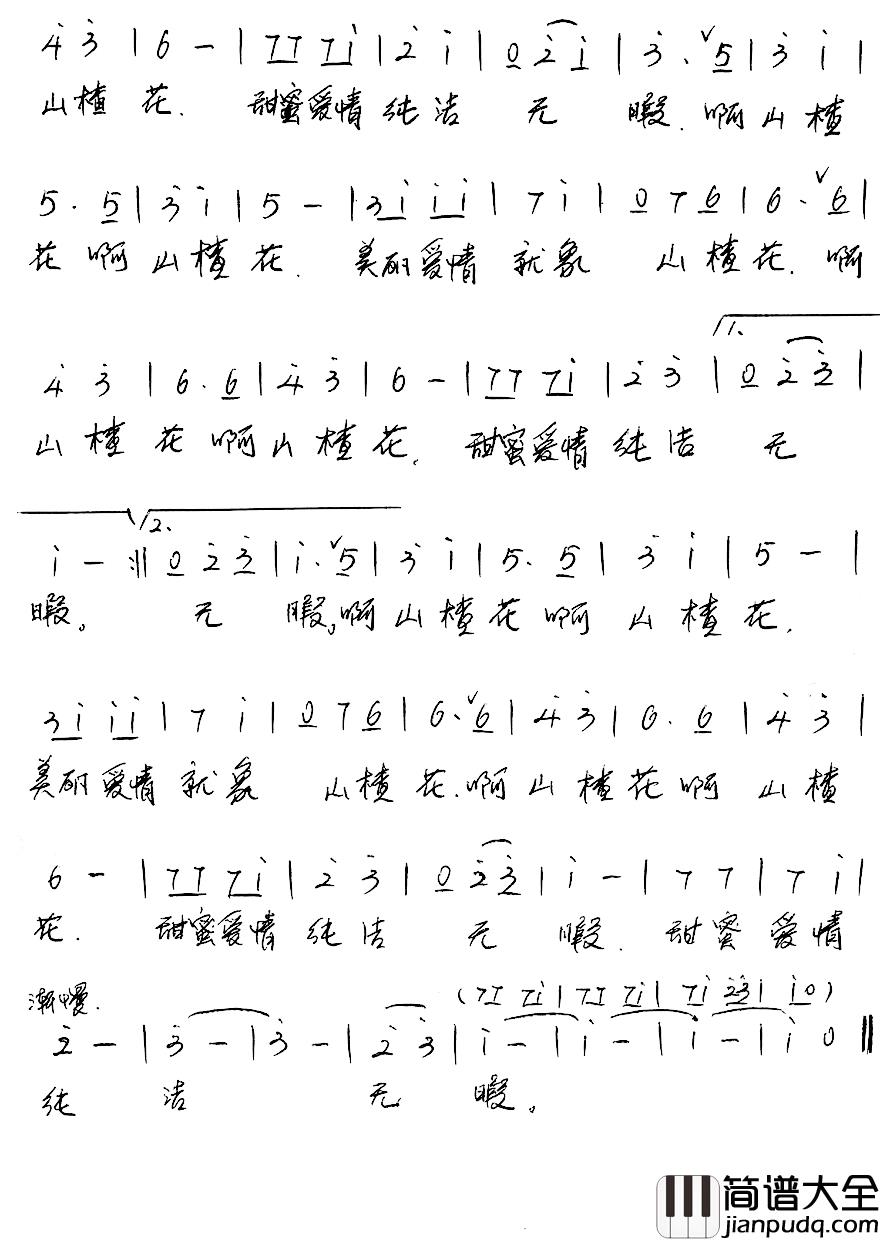 4̇ 3̇ | 6 — | 7 7 7 1̇ | 2̇ 1̇ | 0 2̇ 1̇ | 3̇. ∨5 | 3̇ 1̇ |
山楂 花. 甜蜜爱情纯洁 无 暇. 啊山楂
5. 5 | 3̇ 1̇ | 5 — | 3 1̇ 1̇ 1̇ | 7 1̇ | 0 7 6 | 6. ∨6 |
花 啊 山楂 花. 美丽爱情 就象 山楂花. 啊
/1.
4̇ 3̇ | 6. 6 | 4̇ 3̇ | 6 — | 7 7 7 1̇ | 2̇ 3̇ | 0 2̇ 3̇ |
山楂 花 啊山楂花. 甜蜜爱情纯洁 无
/2.
1̇ — :|| 0 2̇ 3̇ | 1̇. ∨5 | 3̇ 1̇ | 5. 5 | 3̇ 1̇ | 5 — |
暇。 无 暇。啊山楂花啊 山楂花.
3 1̇ 1̇ 1̇ | 7 1̇ | 0 7 6 | 6. ∨6 | 4̇ 3̇ | 6. 6 | 4̇ 3̇ |
美丽爱情 就象 山楂花. 啊山楂花啊 山楂
6 — | 7 7 7 1̇ | 2̇ 3̇ | 0 2̇ 3̇ | 1̇ — | 7 7 | 7 1̇ |
花. 甜蜜爱情纯洁 无 暇. 甜蜜 爱情
渐慢. (7 7 7 1̇ | 7 7 7 1̇ | 7 1̇ 2̇ 3̇ | 1̇ 0)
2̇ — | 3̇ — | 3̇ — | 2̇ 3̇ | 1̇ — | 1̇ — | 1̇ — | 1̇ 0 ||
纯 洁 无 暇。
简谱大全
jianpudq.com